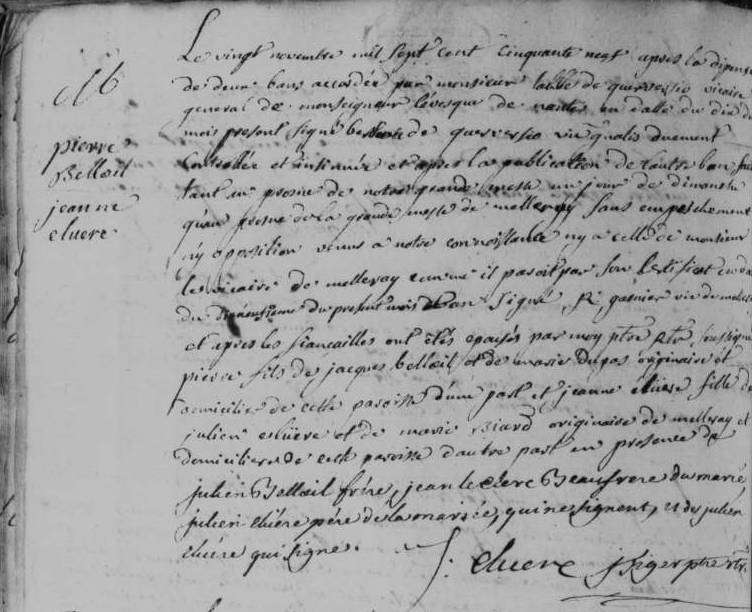 M
pierre
Belloeil
jeanne
eluere
Le vingt novembre mil sept cent cinquante neuf apres la dispense
de deux bans accordée par monsieur labbé de querversio vicaire
general de monseigneur lévesque de nantes en datte du dix du
mois present signé de querversio vic gnalis duement
Controllée et insinuée et apres la publication de lautre ban fait
tant au prosne de notre grande messe un jour de dimanche
quau prosne de la grande messe de melleray sans empeschement
ny oposition venus a notre connoissance ny a celle de monsieur
le vicaire de melleray comme il paroit par son certificat en datte
du du present mois signé R garnier vic de melleray
et apres les fiancailles ont étés epousés par moy ptre soussigné
pierre fils de jacques belloeil et de marie Dupas originaire et
domicilié de cette paroisse d'une part et jeanne eluere fille de
julien eluere et de marie originaire de melleray et
domiciliere de cette paroisse d'autre part en presence de
julien Belloeil frére, jean leclerc Beaufrere du marié,
julien eluére pére de la mariée, qui ne signent, et de julien
eluére qui signe.
J: eluere ptre